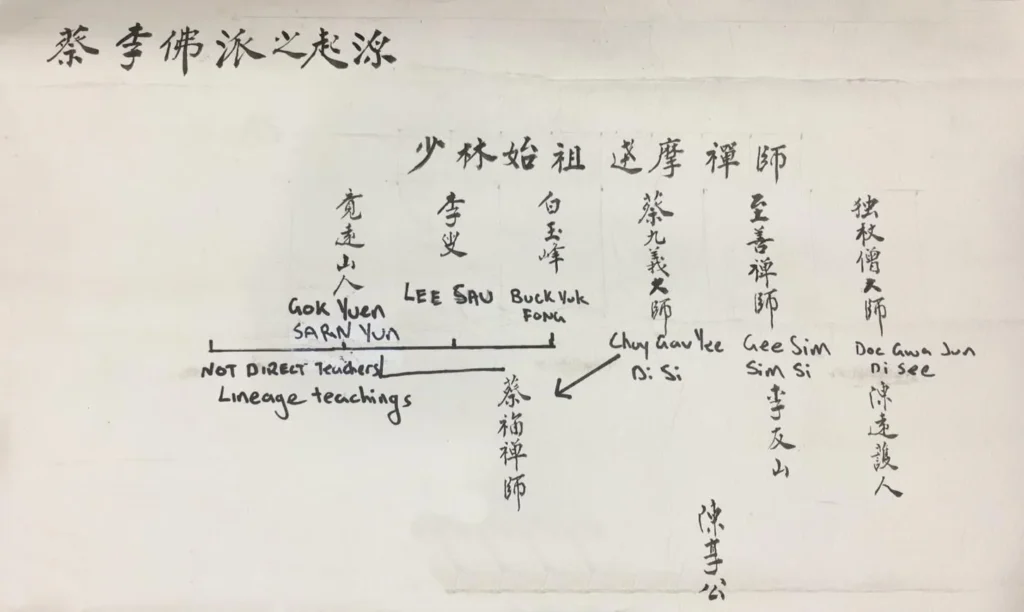 蔡李佛派之起源
少林始祖達摩禪師
竟遠山人
李叟
白玉峰
蔡九義大師
至善禪師
独杖僧大師
GOK YUEN
SARN YUN
LEE SAU
BUCK YUK
FONG
Choy Gau Yee
Di Si
Gee Sim
Sim Si
Doc Gwa Jun
Di See
NOT DIRECT Teachers
Lineage teachings
蔡福禅師
李友山
陳遠護人
陳享公